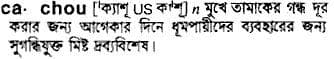 ca· chou [ˈক্যাশূ US কাˈশূ] n মুখে তামাকের গন্ধ দূর
করার জন্য আগেকার দিনে ধূমপায়ীদের ব্যবহারের জন্য
সুগন্ধিযুক্ত মিষ্ট দ্রব্যবিশেষ।